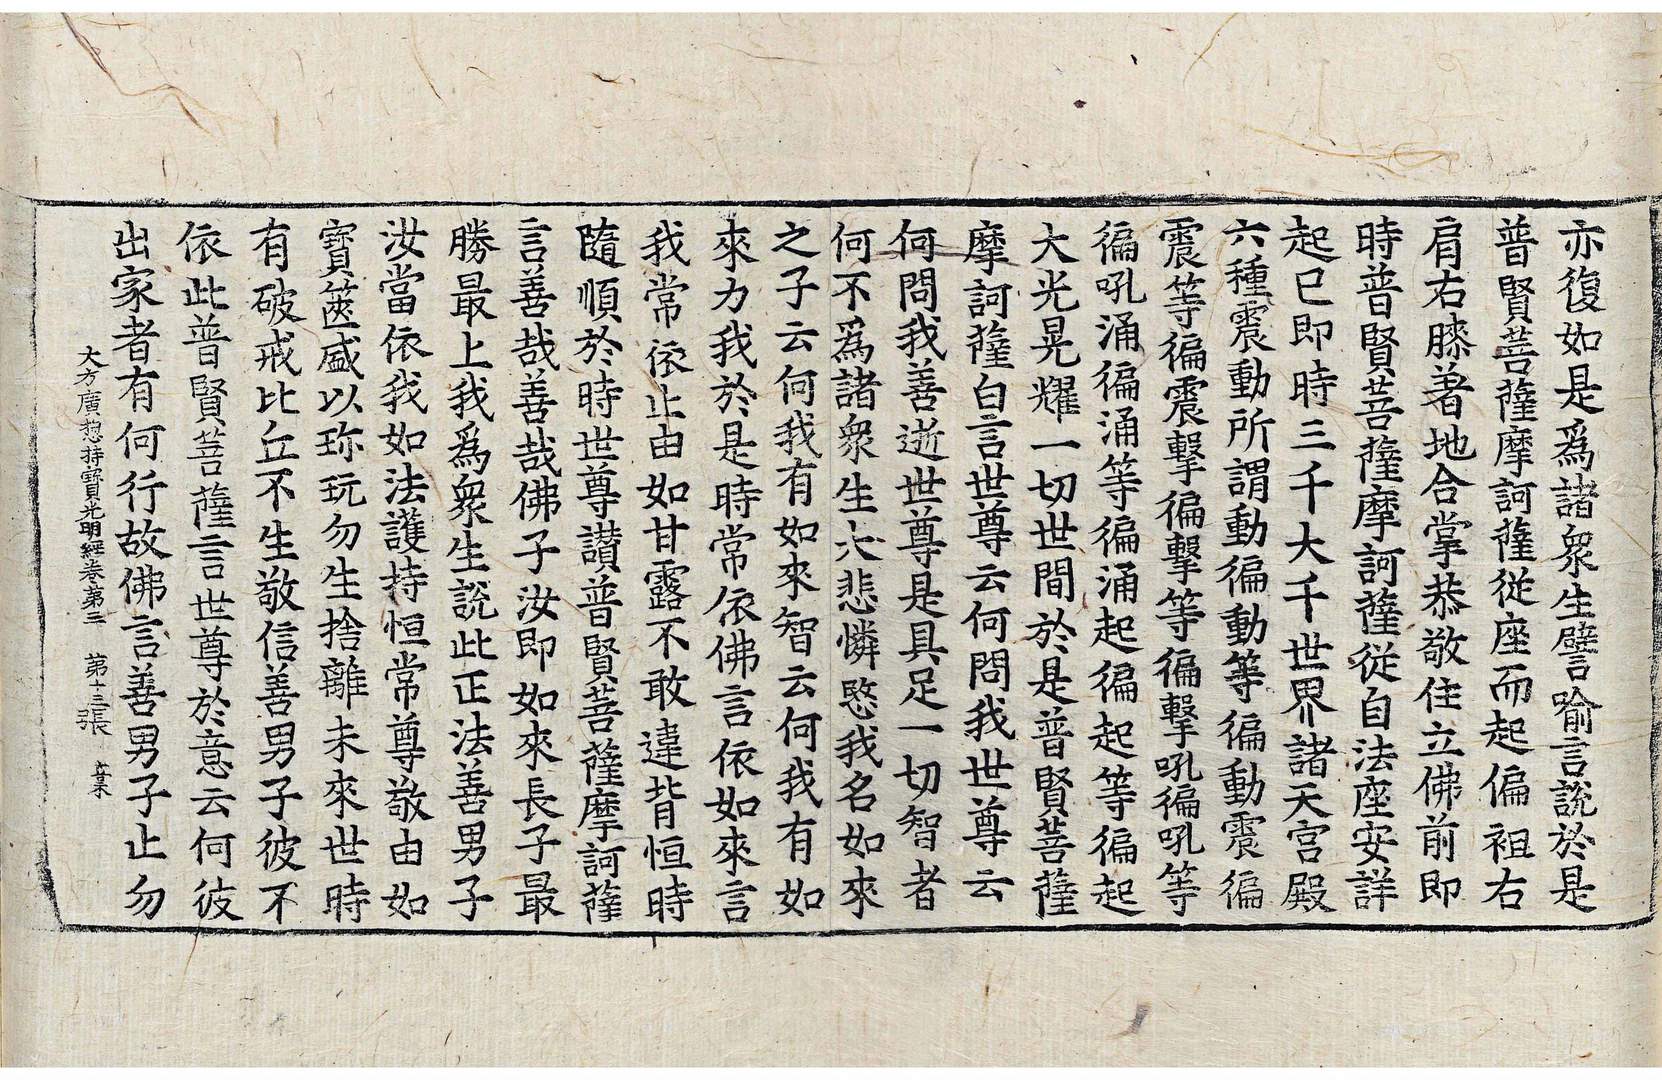 亦復如是爲諸衆生譬喻言說於是
普賢菩薩摩訶薩從座而起偏袒右
肩右膝著地合掌恭敬住立佛前即
時普賢菩薩摩訶薩從自法座安詳
起已即時三千大千世界諸天宮殿
六種震動所謂動徧動等徧動震徧
震等徧震擊徧擊等徧擊吼徧吼等
徧吼涌徧涌等徧涌起徧起等徧起
大光晃耀一切世間於是普賢菩薩
摩訶薩白言世尊云何問我世尊云
何問我善逝世尊是具足一切智者
何不爲諸衆生大悲憐愍我名如來
之子云何我有如來智云何我有如
來力我於是時常依佛言依如來言
我常依止由如甘露不敢違背恒時
隨順於時世尊讃普賢菩薩摩訶薩
言善哉善哉佛子汝即如來長子最
勝最上我爲衆生說此正法善男子
汝當依我如法護持恒常尊敬由如
寶篋盛以珎玩勿生捨離未來世時
有破戒比丘不生敬信善男子彼不
依此普賢菩薩言世尊於意云何彼
出家者有何行故佛言善男子止勿
大方廣揔持寶光明經卷第三 第十三張 業